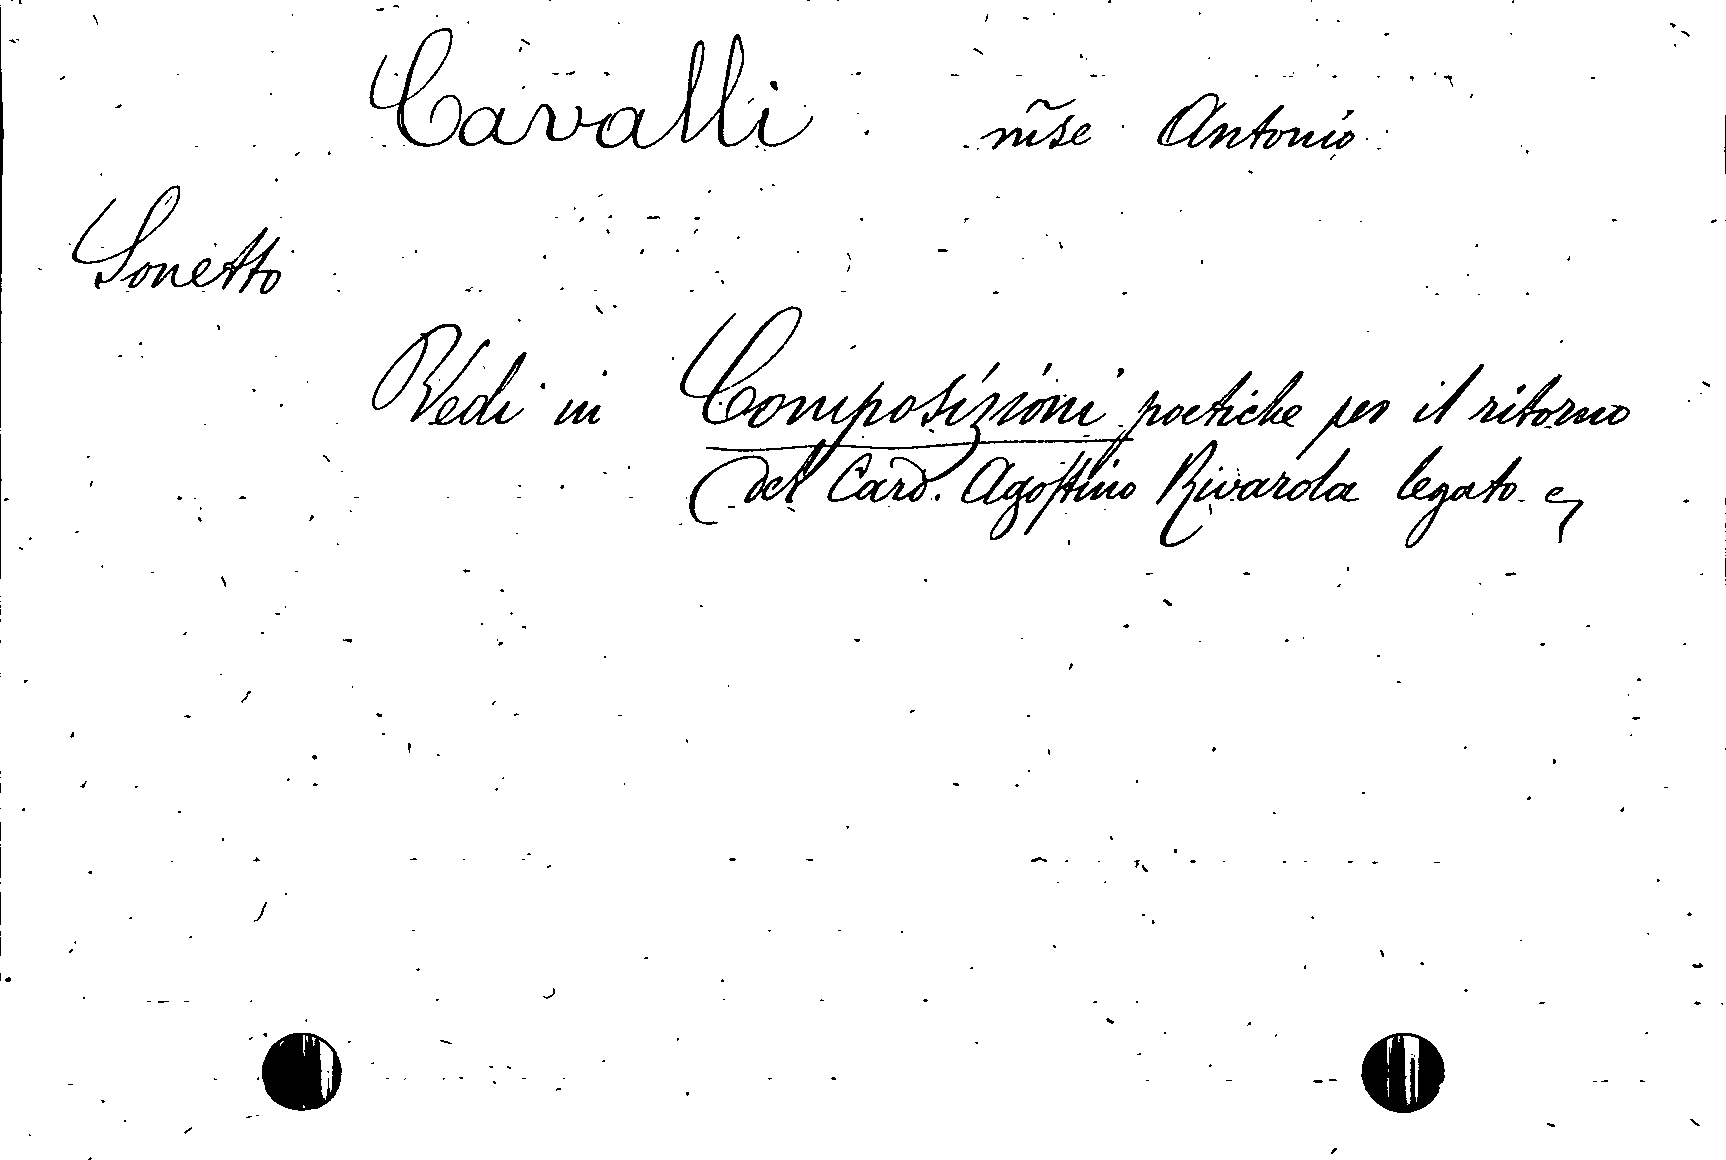 Cavalli m̃se Antonio
Sonetto
Vedi in Composizioni poetiche per il ritorno
del Card. Agostino Rivarola legato